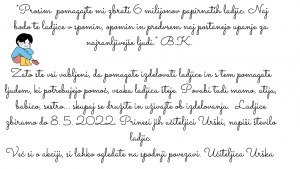 "Prosim pomagajte mi zbrati 6 milijonov papirnatih ladjic. Naj
bodo te ladjice v spomin, opomin in predvsem naj postanejo upanje za
najranljivejše ljudi." B.K.
Zato ste vsi vabljeni, da pomagate izdelovati ladjice in s tem pomagate
ljudem, ki potrebujejo pomoč, vsaka ladjica šteje. Povabi tudi mamo, atija,
babico, sestro... skupaj se družite in uživajte ob izdelovanju. Ladjice
zbiramo do 8. 5. 2022. Prinesi jih učiteljici Urški, napiši število
ladjic.
Več si o akciji, si lahko ogledate na spodnji povezavi. Učiteljica Urška